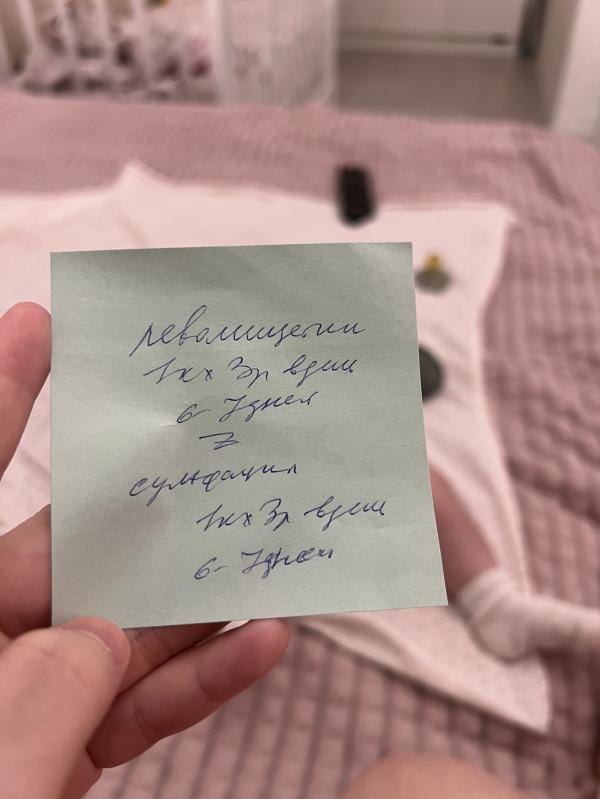 левомицетин
1к х 3р в день
6-7 дней
Z
сульфацил
1к х 3р в день
6-7 дней